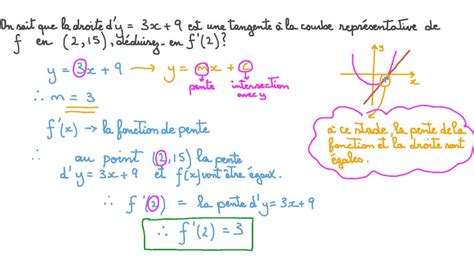 On sait que la droite d'y = 3x+9 est une tangente à la courbe représentative de
f en (2,15), déduisez-en f'(2)?
y = 3x + 9 → y = mx + c
pente intersection
avec y
∴ m = 3
f'(x) → la fonction de pente
∴ au point (2,15) la pente
d'y = 3x+9 et f(x) vont être égaux.
∴ f'(2) = la pente d'y = 3x+9
∴ f'(2) = 3
y
x
à ce stade, la pente de la
fonction et la droite sont
égales.